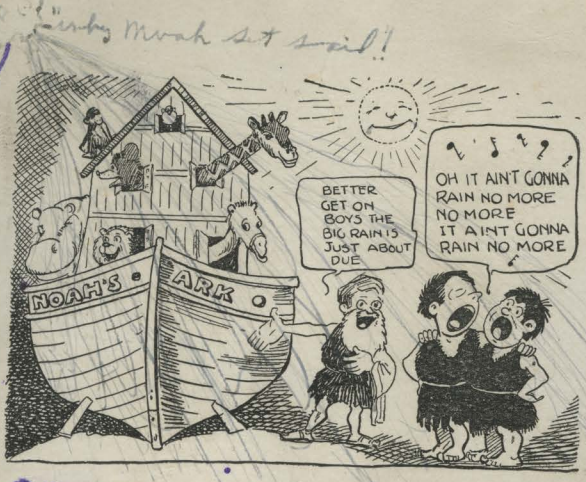 set sail!
NOAH'S ARK
BETTER
GET ON
BOYS THE
BIG RAIN IS
JUST ABOUT
DUE
OH IT AIN'T GONNA
RAIN NO MORE
NO MORE
IT AINT GONNA
RAIN NO MORE